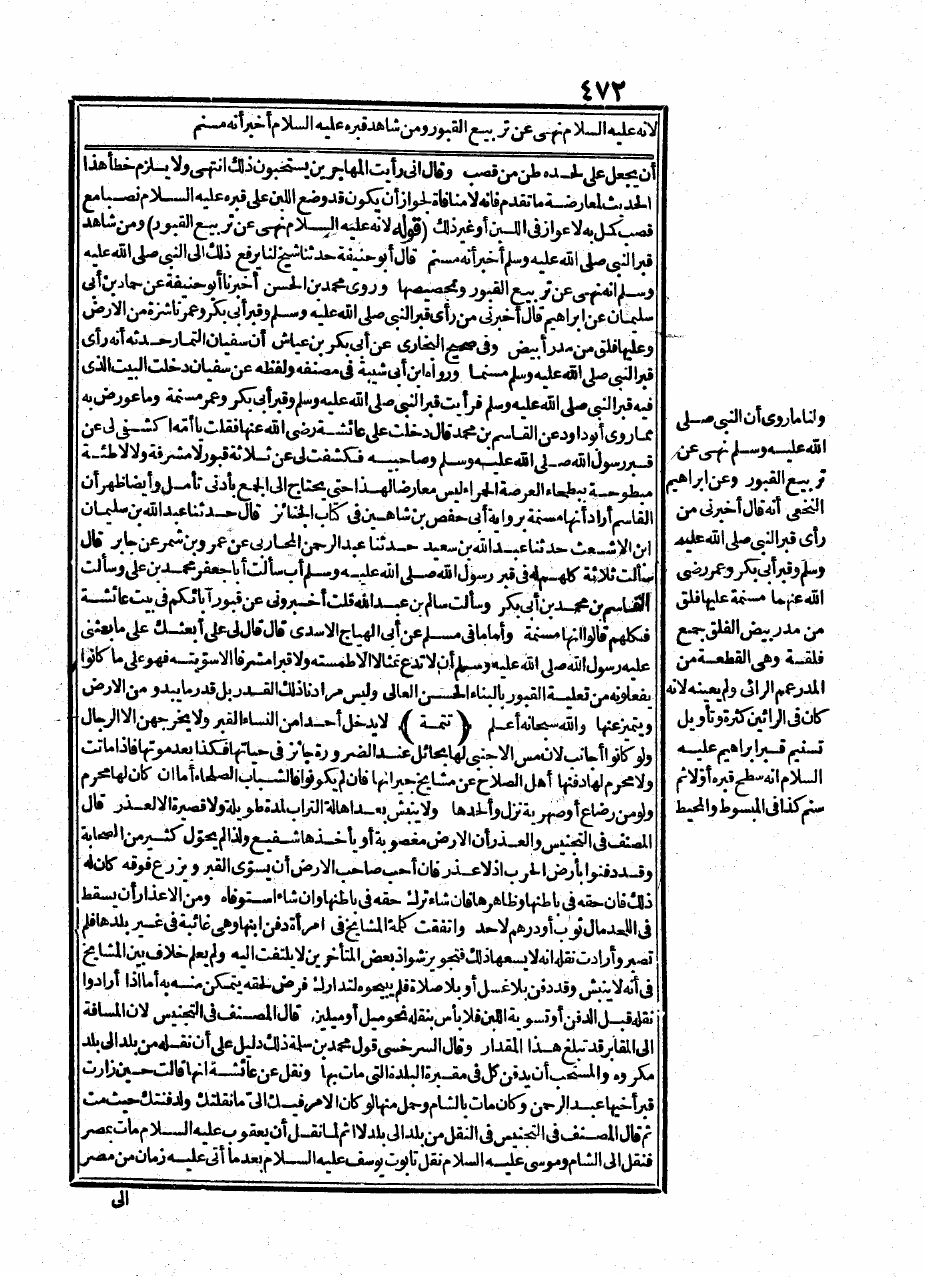 ٤٧٢
لانه عليه السلام نهى عن تربيع القبور ومن شاهد قبره عليه السلام أخبر أنه مسنم
أن يجعل على لحده طن من قصب وقال انى رأيت المهاجرين يستحبون ذلك انتهى ولا يلزم خطأ هذا
الحديث لمعارضة ما تقدم فانه لا منافاة لجواز أن يكون قد وضع اللبن على قبره عليه السلام نصبا مع
قصب كمل به لاعواز فى اللبن أو غير ذلك (قوله لانه عليه السلام نهى عن تربيع القبور) ومن شاهد
قبر النبى صلى الله عليه وسلم أخبر أنه مسنم قال أبو حنيفة حدثنا شيخ لنا يرفع ذلك الى النبى صلى الله عليه
وسلم انه نهى عن تربيع القبور وتجصيصها وروى محمد بن الحسن أخبرنا أبو حنيفة عن حماد بن أبى
سليمان عن ابراهيم قال أخبرنى من رأى قبر النبى صلى الله عليه وسلم وقبر أبى بكر وعمر ناشزة من الارض
وعليها فلق من مدر أبيض وفى صحيح البخارى عن أبى بكر بن عياش أن سفيان التمار حدثه أنه رأى
قبر النبى صلى الله عليه وسلم مسنما ورواه ابن أبى شيبة فى مصنفه ولفظه عن سفيان دخلت البيت الذى
فيه قبر النبى صلى الله عليه وسلم فرأيت قبر النبى صلى الله عليه وسلم وقبر أبى بكر وعمر مسنمة وما عورض به
مما روى أبو داود عن القاسم بن محمد قال دخلت على عائشة رضى الله عنها فقلت يا أمه اكشفى لى عن
قبر رسول الله صلى الله عليه وسلم وصاحبيه فكشفت لى عن ثلاثة قبور لا مشرفة ولا لاطئة
مبطوحة ببطحاء العرصة الحمراء ليس معارضا لهذا حتى يحتاج الى الجمع بأدنى تأمل وأيضا ظهر أن
القاسم أراد أنها مسنمة برواية أبى حفص بن شاهين فى كتاب الجنائز قال حدثنا عبد الله بن سليمان
ابن الاشعث حدثنا عبد الله بن سعيد حدثنا عبد الرحمن المحاربى عن عمرو بن شمر عن جابر قال
سألت ثلاثة كلهم له فى قبر رسول الله صلى الله عليه وسلم أب سألت أبا جعفر محمد بن على وسألت
القاسم بن محمد بن أبى بكر وسألت سالم بن عبد الله قلت أخبرونى عن قبور آبائكم فى بيت عائشة
فكلهم قالوا انها مسنمة وأما ما فى مسلم عن أبى الهياج الاسدى قال قال لى على أبعثك على ما بعثنى
عليه رسول الله صلى الله عليه وسلم أن لا تدع تمثالا الا طمسته ولا قبرا مشرفا الا سويته فهو على ما كانوا
يفعلونه من تعلية القبور بالبناء الحسن العالى وليس مرادنا ذلك القدر بل قدر ما يبدو من الارض
ويتميز عنها والله سبحانه أعلم ﴿تتمة﴾ لا يدخل أحدا من النساء القبر ولا يخرجهن الا الرجال
ولو كانوا أجانب لان مس الاجنبى لها بحائل عند الضرورة جائز فى حياتها فكذا بعد موتها فاذا ماتت
ولا محرم لها دفنها أهل الصلاح من مشايخ جيرانها فان لم يكونوا فالشباب الصلحاء أما ان كان لها محرم
ولو من رضاع أو صهرية نزل وألحدها ولا ينبش بعد اهالة التراب لمدة طويلة ولا قصيرة الا لعذر قال
المصنف فى التجنيس والعذر أن الارض مغصوبة أو يأخذها شفيع ولذا لم يحول كثير من الصحابة
وقد دفنوا بأرض الحرب اذ لا عذر فان أحب صاحب الارض أن يسوى القبر ويزرع فوقه كان له
ذلك فان حقه فى باطنها وظاهرها فان شاء ترك حقه فى باطنها وان شاء استوفاه ومن الاعذار أن يسقط
فى اللحد مال ثوب أو درهم لاحد واتفقت كلمة المشايخ فى امرأة دفن ابنها وهى غائبة فى غير بلدها فلم
تصبر وأرادت نقله انه لا يسعها ذلك فتجويز شواذ بعض المتأخرين لا يلتفت اليه ولم يعلم خلاف بين المشايخ
فى أنه لا ينبش وقد دفن بلا غسل أو بلا صلاة فلم يبيحوه لتدارك فرض لحقه يتمكن منه به أما اذا أرادوا
نقله قبل الدفن أو تسوية اللبن فلا بأس بنقله نحو ميل أو ميلين قال المصنف فى التجنيس لان المسافة
الى المقابر قد تبلغ هذا المقدار وقال السرخسى قول محمد بن سلمة ذلك دليل على أن نقله من بلد الى بلد
مكروه والمستحب أن يدفن كل فى مقبرة البلدة التى مات بها ونقل عن عائشة انها قالت حين زارت
قبر أخيها عبد الرحمن وكان مات بالشام وحمل منها لو كان الامر فيك الىّ ما نقلتك ولدفنتك حيث مت
ثم قال المصنف فى التجنيس فى النقل من بلد الى بلد لا اثم لما نقل أن يعقوب عليه السلام مات بمصر
فنقل الى الشام وموسى عليه السلام نقل تابوت يوسف عليه السلام بعد ما أتى عليه زمان من مصر
الى
ولنا ما روى أن النبى صلى
الله عليه وسلم نهى عن
تربيع القبور وعن ابراهيم
النخعى أنه قال أخبرنى من
رأى قبر النبى صلى الله عليه
وسلم وقبر أبى بكر وعمر رضى
الله عنهما مسنمة عليها فلق
من مدر بيض الفلق جمع
فلقة وهى القطعة من
المدر عم الرائى ولم يعينه لانه
كان فى الرائين كثرة وتأويل
تسنيم قبر ابراهيم عليه
السلام انه سطح قبره أولا ثم
سنم كذا فى المبسوط والمحيط